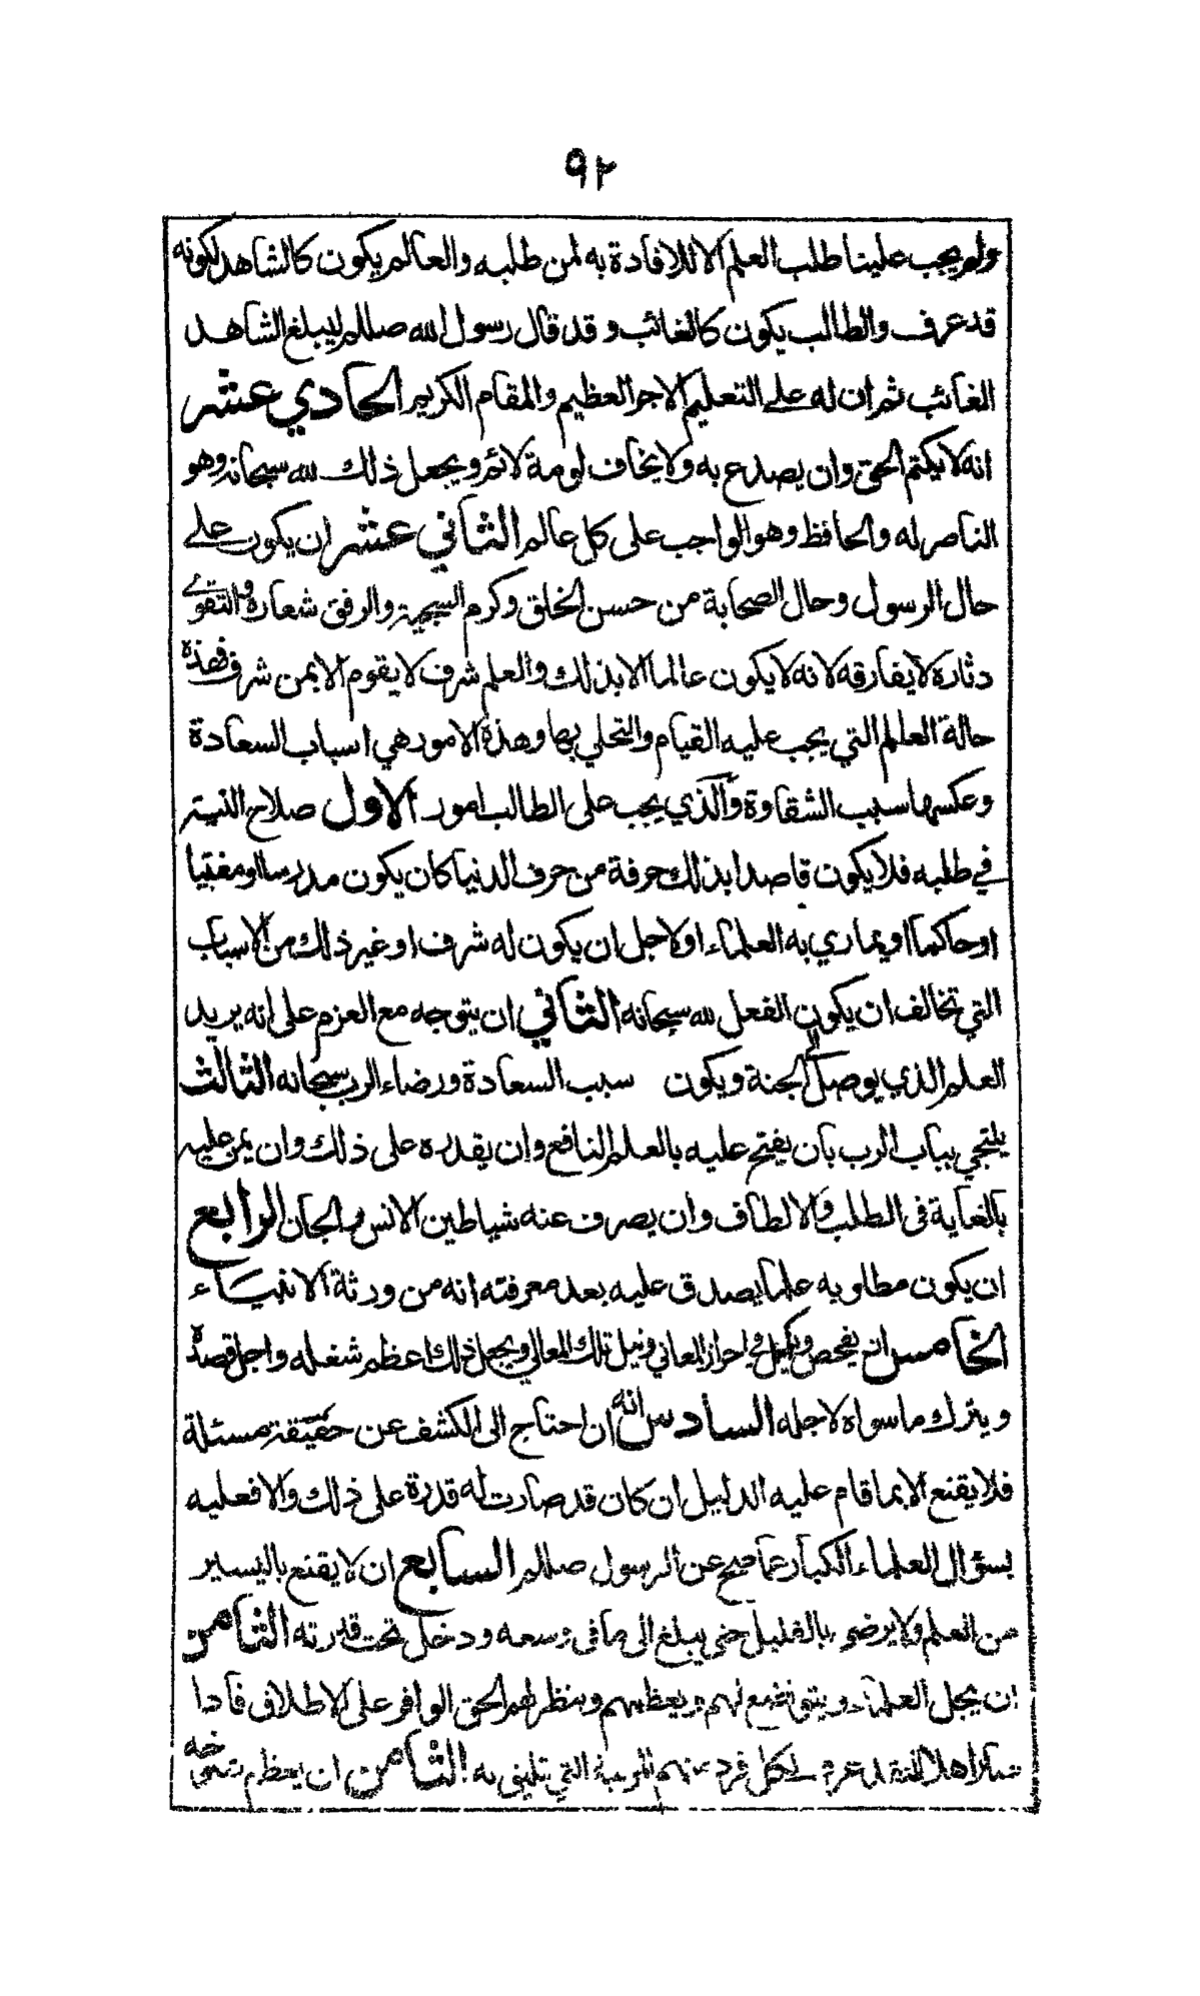 ٩٢
ولم يجب علينا طلب العلم الا للافادة به لمن طلبه والعالم يكون كالشاهد لكونه
قد عرف والطالب يكون كالغائب وقد قال رسول الله صللم ليبلغ الشاهد
الغائب ثم ان له على التعليم الاجر العظيم والمقام الكريم الحادي عشر
انه لا يكتم الحق وان يصدع به ولا يخاف لومة لائم ويجعل ذلك لله سبحانه وهو
الناصر له والحافظ وهو الواجب على كل عالم الثاني عشر ان يكون على
حال الرسول وحال الصحابة من حسن الخلق وكرم السجية والرفق شعاره والتقوى
دثاره لا يفارقه لانه لا يكون عالما الا بذلك والعلم شرف لا يقوم الا بمن شرف فهذه
حالة العلم التي يجب عليه القيام والتحلي بها وهذه الامور هي اسباب السعادة
وعكسها سبب الشقاوة والذي يجب على الطالب امور الاول صلاح النية
في طلبه فلا يكون قاصدا بذلك حرفة من حرف الدنيا كان يكون مدرسا او مفتيا
او حاكما او يماري به العلماء او لاجل ان يكون له شرف او غير ذلك من الاسباب
التي تخالف ان يكون الفعل لله سبحانه الثاني ان يتوجه مع العزم على انه يريد
العلم الذي يوصل الى الجنة ويكون سبب السعادة ورضاء الرب سبحانه الثالث
يلتجي بباب الرب بان يفتح عليه بالعلم النافع وان يقدره على ذلك وان يمن عليه
بالغاية في الطلب والالطاف وان يصرف عنه شياطين الانس والجان الرابع
ان يكون مطلوبه علما يصدق عليه بعد معرفته انه من ورثة الانبياء
الخامس ان يفحص في احراز المعاني ونيل تلك المعالي ويجعل ذلك اعظم شغله واجل قصده
ويترك ما سواه لاجله السادس انه ان احتاج الى الكشف عن حقيقة مسئلة
فلا يقنع الا بما قام عليه الدليل ان كان قد صارت له قدرة على ذلك والا فعليه
بسؤال العلماء الكبار عما صح عن الرسول صللم السابع ان لا يقنع باليسير
من العلم ولا يرضى بالقليل حتى يبلغ الى ما في وسعه ودخل تحت قدرته الثامن
ان يجل العلماء ويتواضع لهم ويعظمهم وينظر لهم الحق الوافر على الاطلاق فاذا
لكل فرد منهم المرتبة التي تليق به الثامن ان يعظم